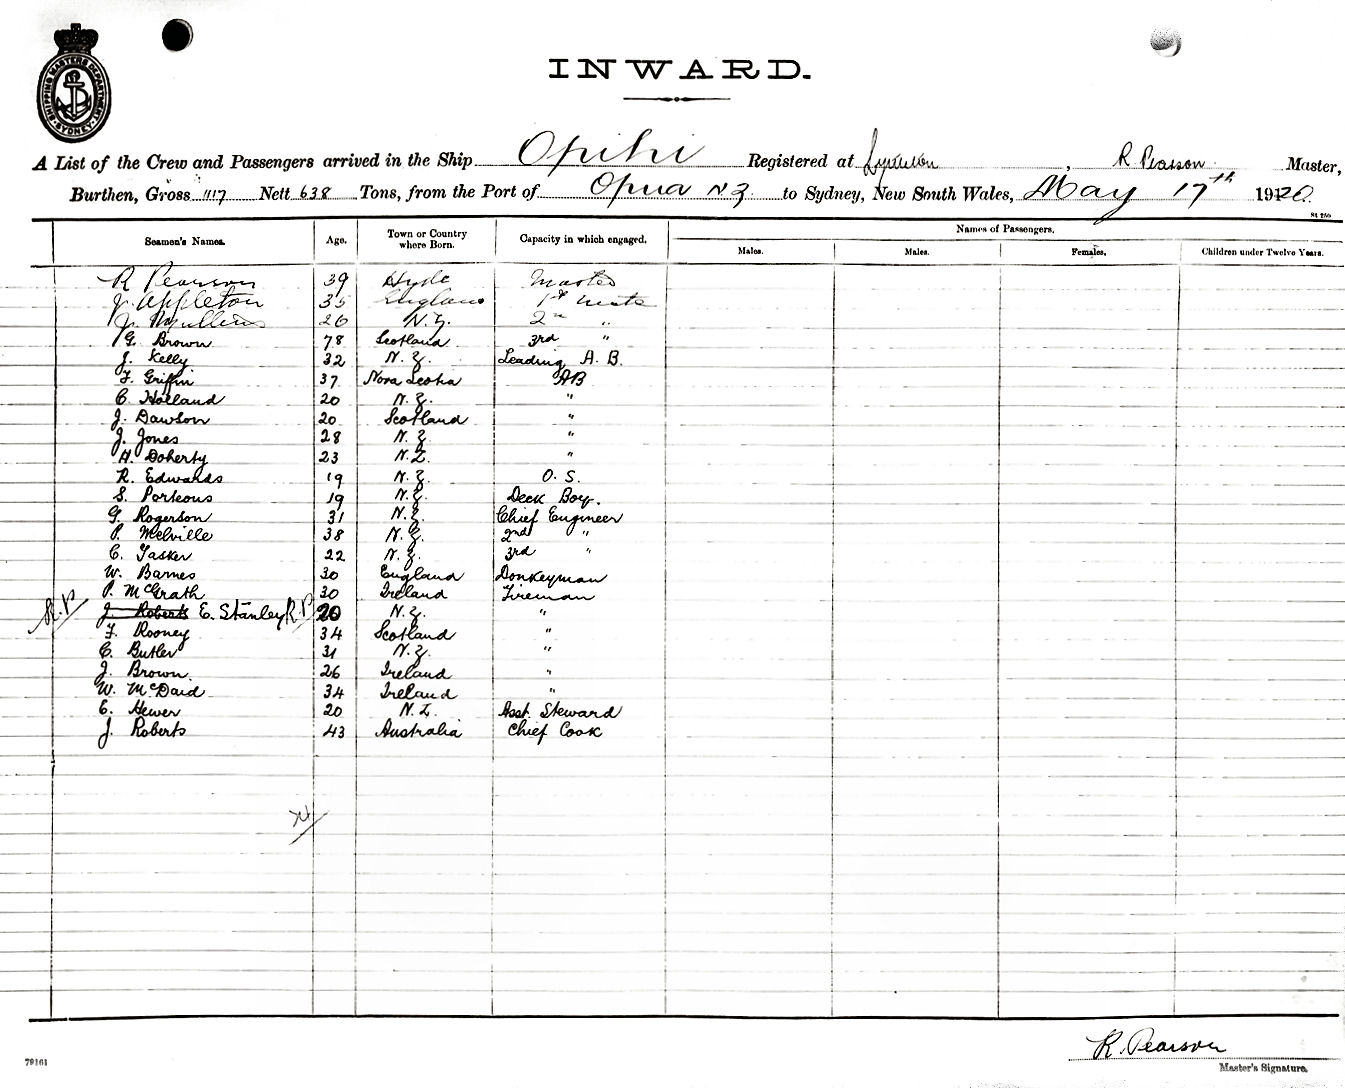 SHIPPING MASTERS DEPARTMENT SYDNEY
INWARD.
A List of the Crew and Passengers arrived in the Ship Opihi Registered at Lyttelton, R Pearson Master,
Burthen, Gross 1117 Nett 638 Tons, from the Port of Opua N Z to Sydney, New South Wales, May 17th 1920.
St 250
Seamen's Names. Age. Town or Country where Born. Capacity in which engaged. Names of Passengers.
Males. Males. Females. Children under Twelve Years.
R Pearson 39 Hyde Master
J. Appleton 35 England 1st Mate
J. Mullins 26 N.Z. 2nd "
G. Brown 78 Scotland 3rd "
J. Kelly 32 N.Z. Leading A.B.
F. Griffin 37 Nova Scotia AB
C. Holland 20 N.Z. "
J. Dawson 20 Scotland "
J. Jones 28 N.Z. "
H. Doherty 23 N.Z. "
R. Edwards 19 N.Z. O.S.
S. Porteous 19 N.Z. Deck Boy.
G. Rogerson 31 N.Z. Chief Engineer
P. Melville 38 N.Z. 2nd "
C. Tasker 22 N.Z. 3rd "
W. Barnes 30 England Donkeyman
P. McGrath 30 Ireland Fireman
R.P J. Roberts E. Stanley R.P 20 N.Z. "
F. Rooney 34 Scotland "
C. Butler 31 N.Z. "
J. Brown. 26 Ireland "
W. McDaid 34 Ireland "
E. Hewer 20 N.Z. Asst. Steward
J. Roberts 43 Australia Chief Cook
R. Pearson
Master's Signature.
79161